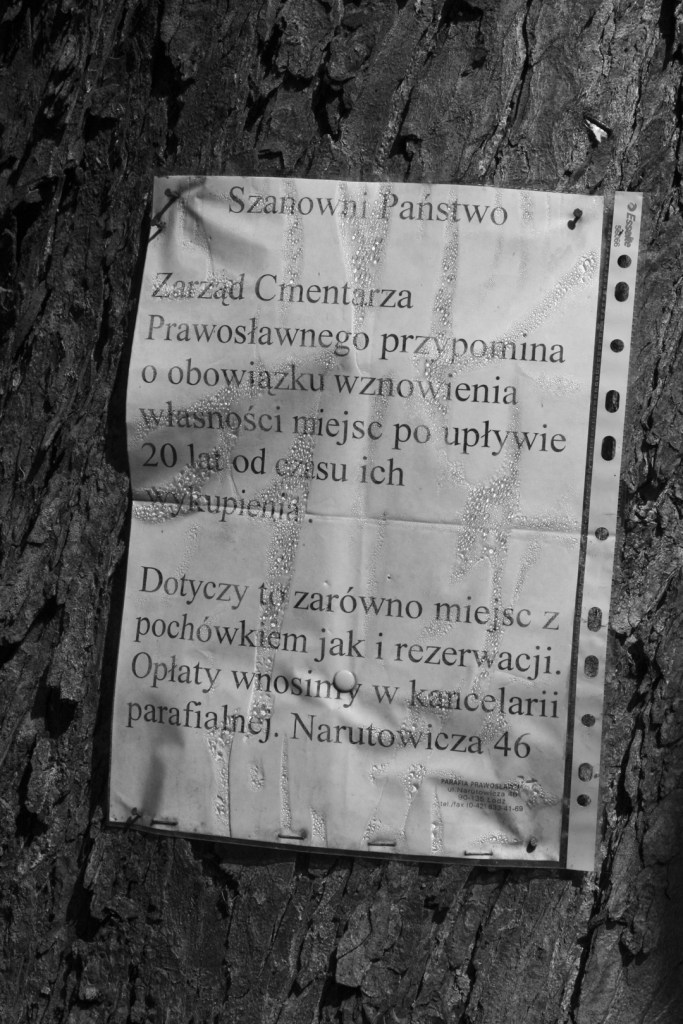 Szanowni Państwo
Zarząd Cmentarza
Prawosławnego przypomina
o obowiązku wznowienia
własności miejsc po upływie
20 lat od czasu ich
wykupienia.
Dotyczy to zarówno miejsc z
pochówkiem jak i rezerwacji.
Opłaty wnosimy w kancelarii
parafialnej. Narutowicza 46
PARAFIA PRAWOSŁAWNA
ul. Narutowicza 46